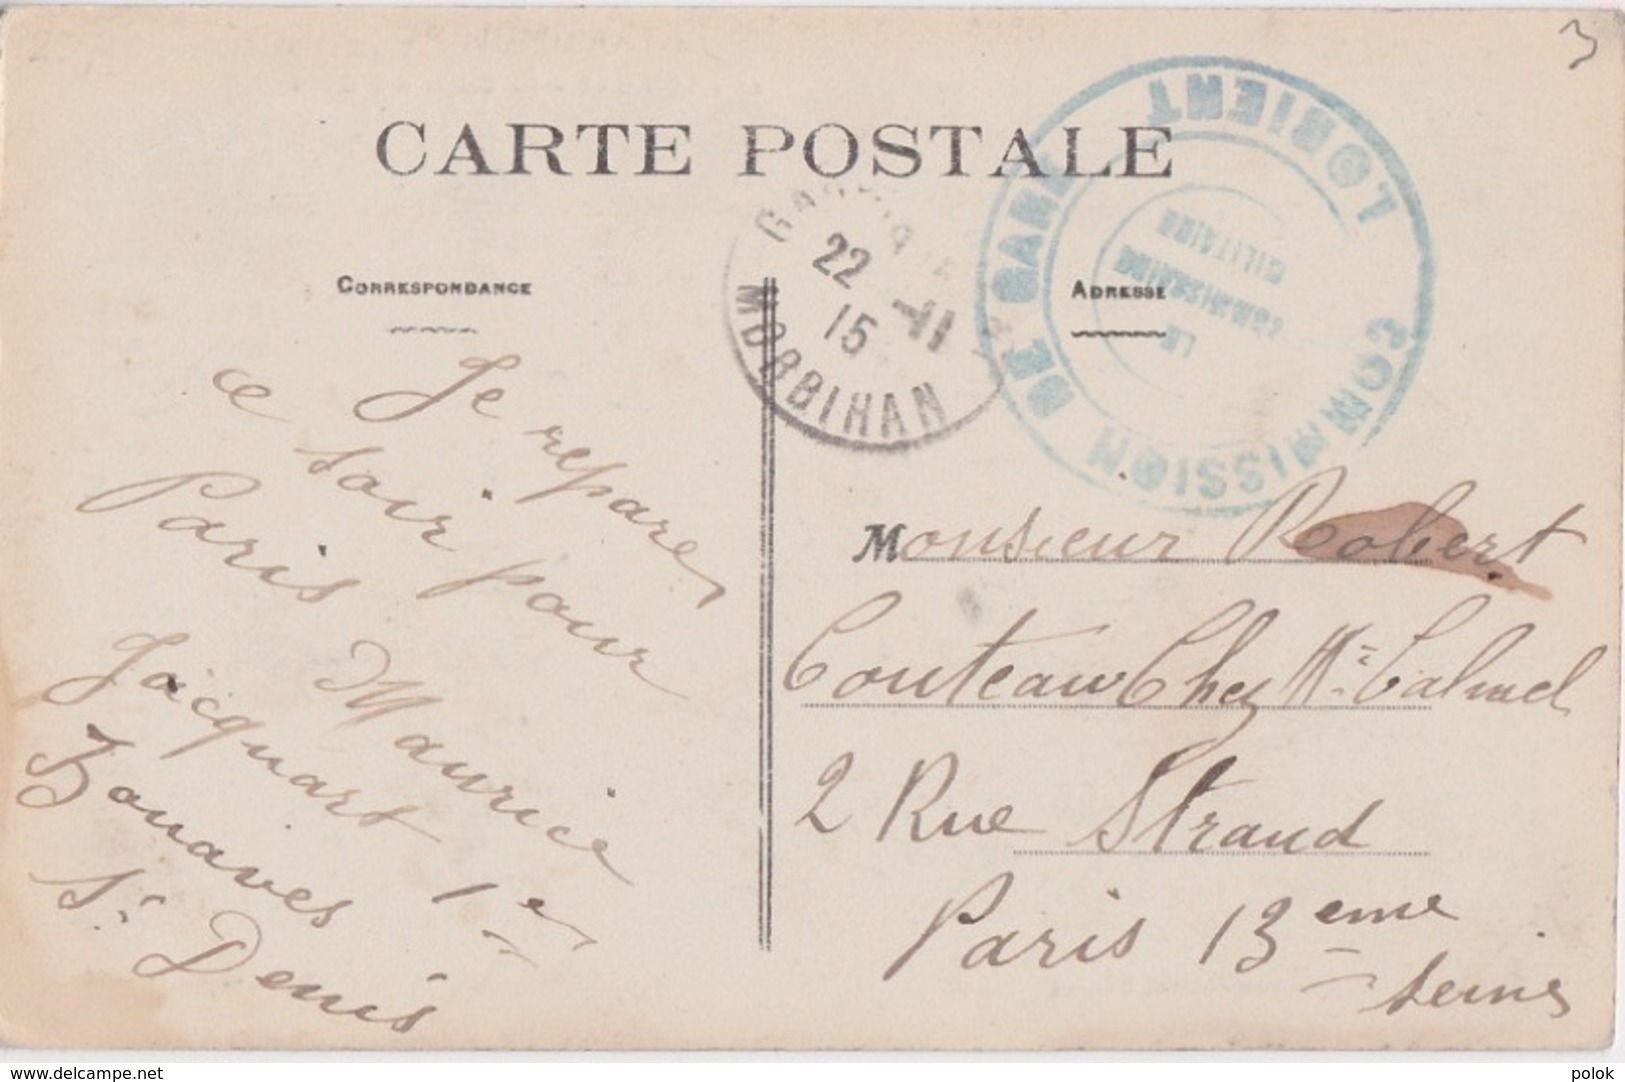 3
CARTE POSTALE
COMMISSION DE GARE
LORIENT
LE
COMMISSAIRE
MILITAIRE
22 -11
15
MORBIHAN
CORRESPONDANCE
ADRESSE
Je repare
ce soir pour
Paris
Maurice
Jacquart 1er
St Denis
Monsieur Robert
Couteau Chez Mr
2 Rue Straud
Paris 13eme
www.delcampe.net
polok